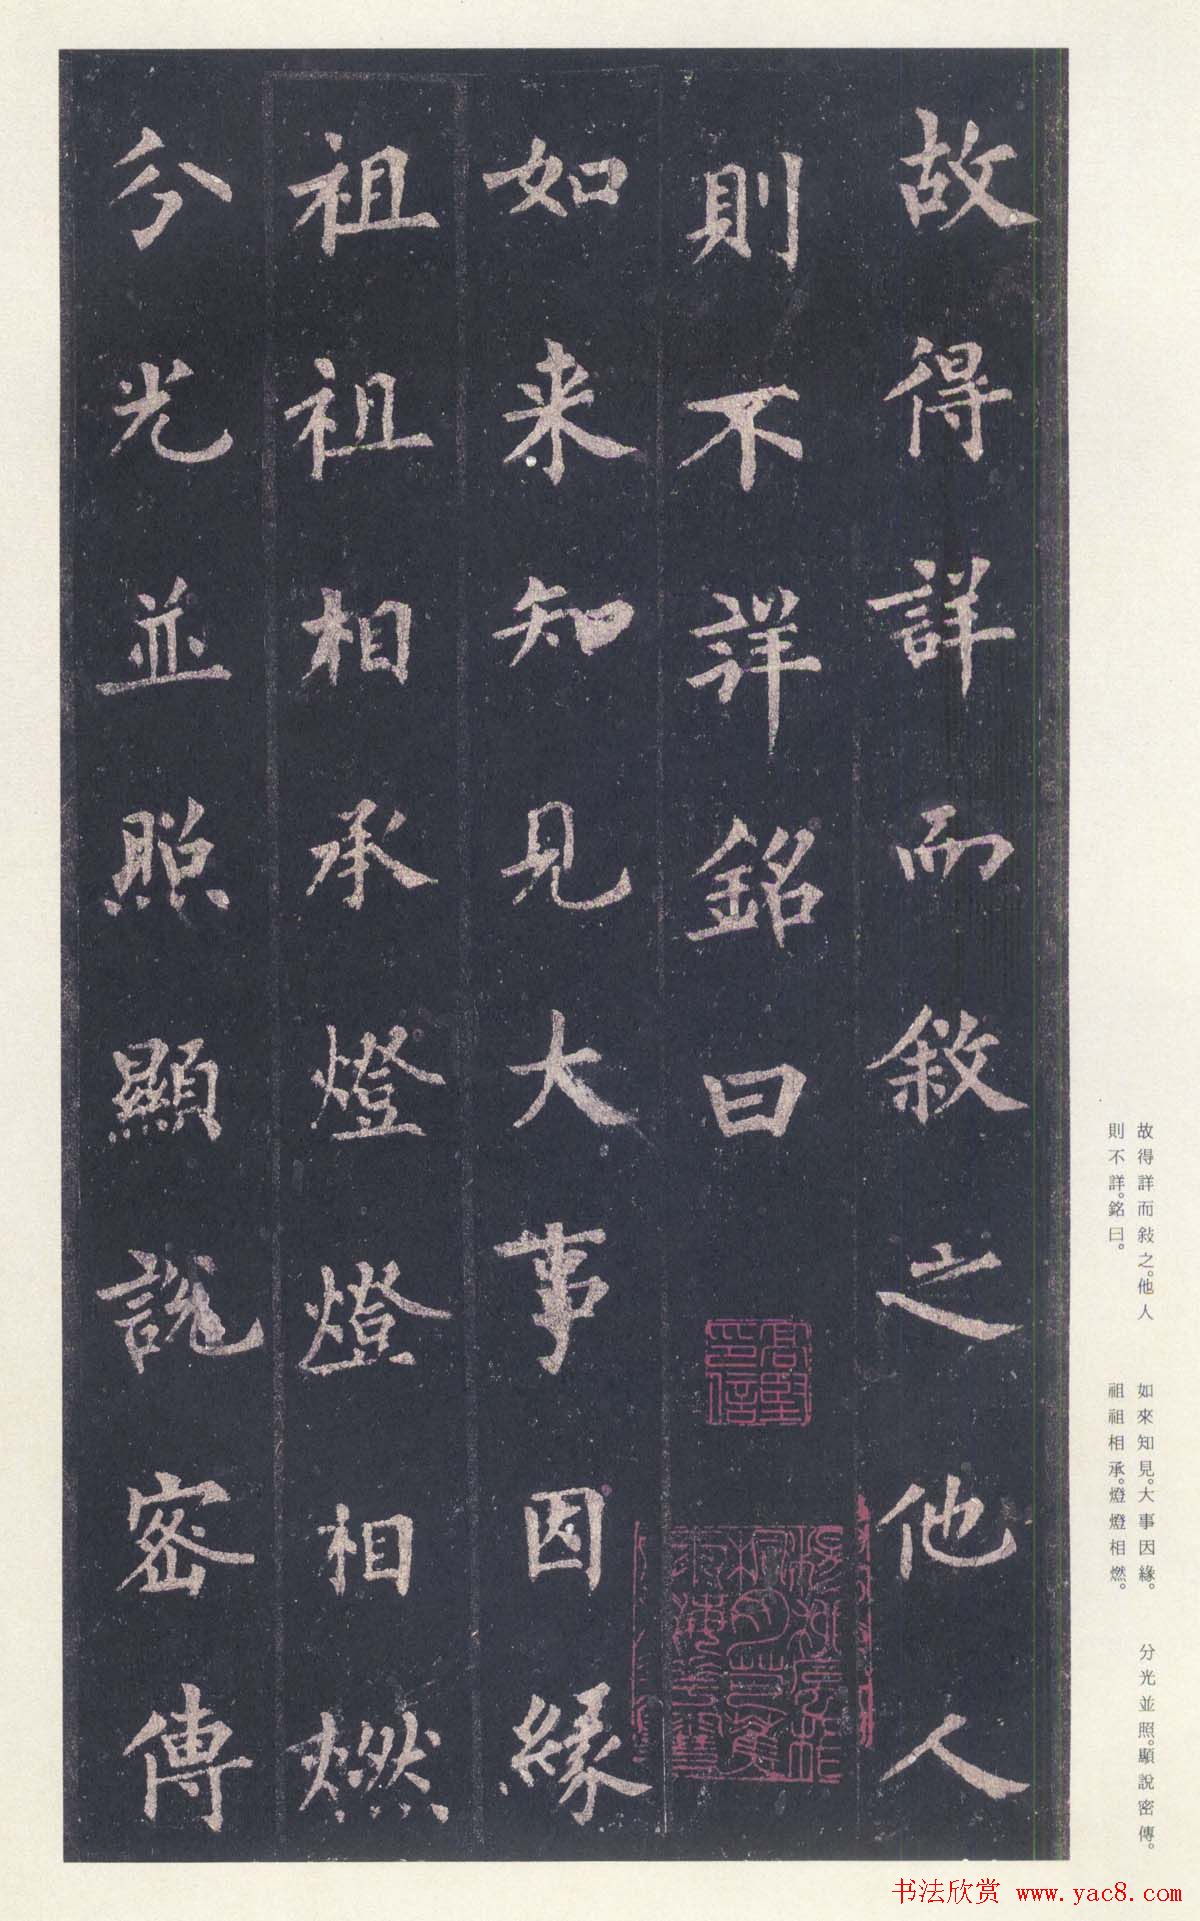 故得詳而敘之他人
則不詳銘曰
如来知見大事因緣
祖祖相承燈燈相燃
分光並照顯說密傳
故得詳而敍之。他人
則不詳。銘曰。
如來知見。大事因緣。
祖祖相承。燈燈相燃。
分光並照。顯說密傳。
书法欣赏 www.yac8.com